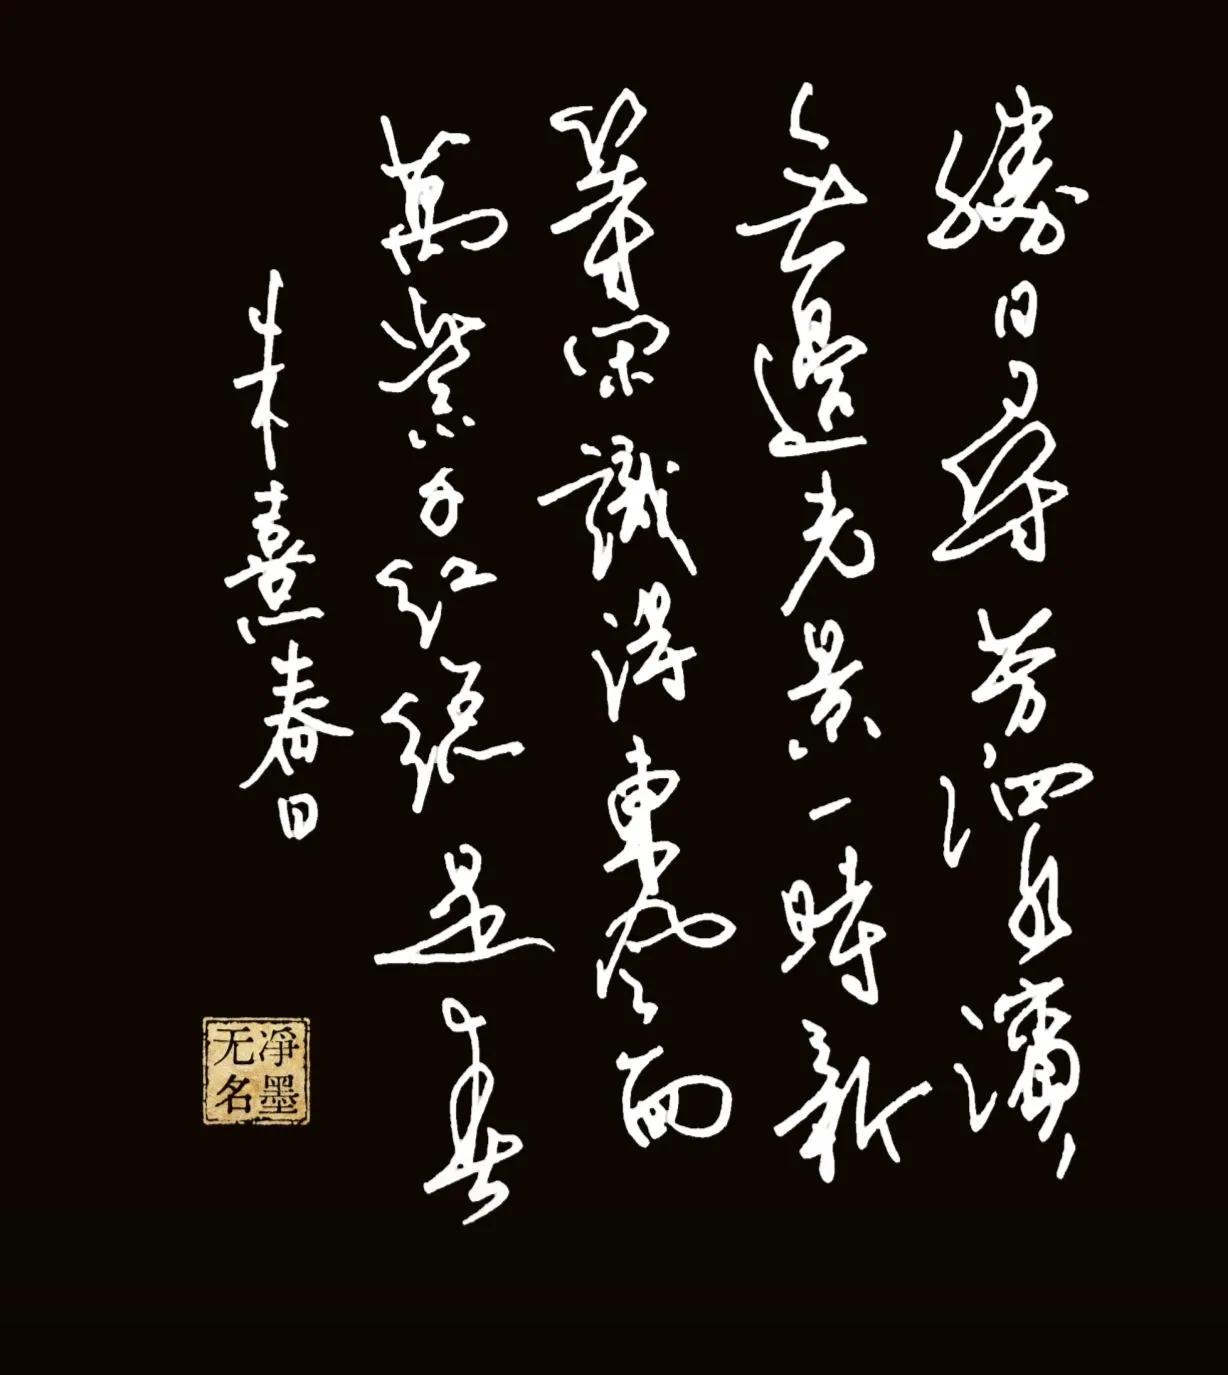 勝日尋芳泗水濱
無邊光景一時新
等閑識得東風面
萬紫千紅總是春
朱熹春日
凈墨
无名